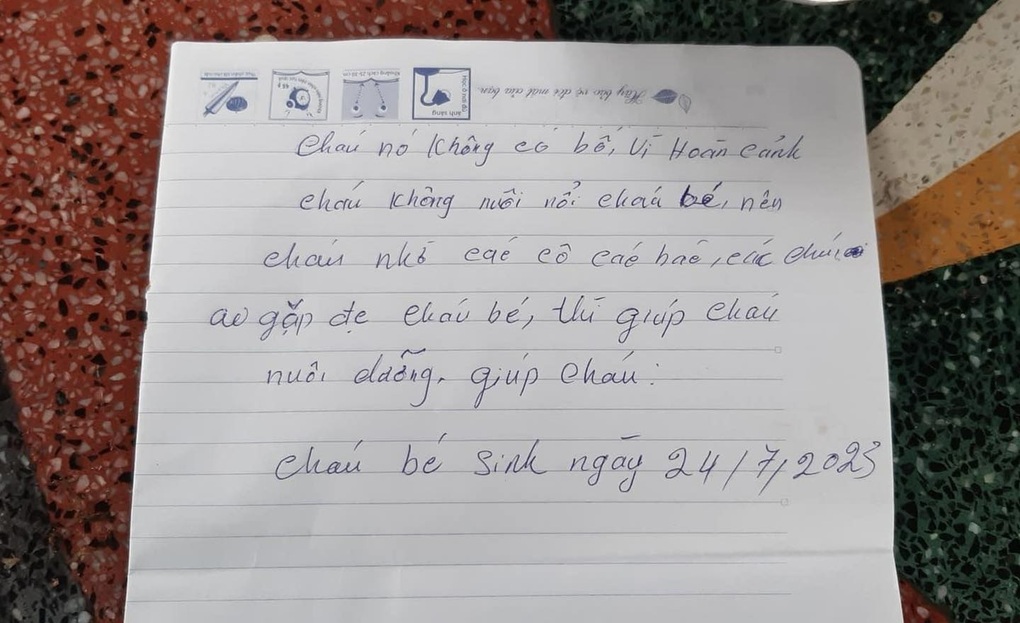 Hãy bảo vệ đôi mắt của bạn.
cháu nó không có bố, vì Hoàn cảnh
cháu không nuôi nổi cháu bé, nên
cháu nhờ các cô các bác, các chú,
ao gặp đc cháu bé, thì giúp cháu
nuôi dưỡng, giúp cháu:
cháu bé sinh ngày 24/7/2023